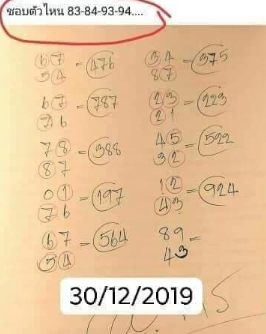 ชอบตัวไหน 83-84-93-94....
67
54 = 476
67
76 = 787
78
87 = 388
01
76 = 197
67
54 = 564
34
87 = 375
23
21 = 223
45
32 = 522
12
43 = 924
89
43 =
30/12/2019